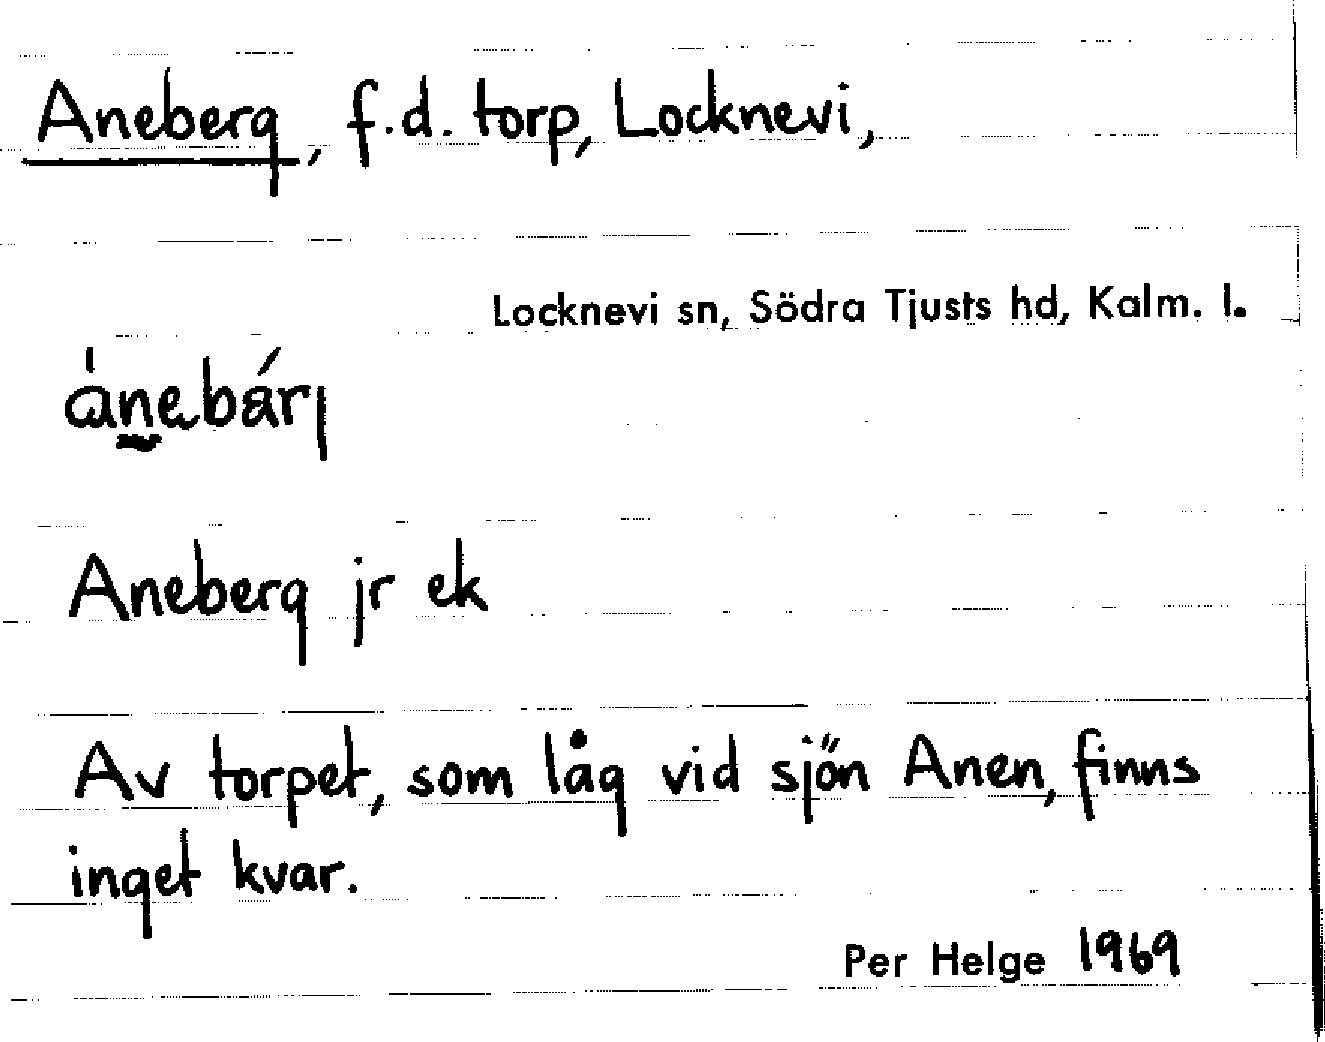 Aneberg, f.d. torp, Locknevi,
Locknevi sn, Södra Tjusts hd, Kalm. l.
ànebárj
Aneberg jr ek
Av torpet, som låg vid sjön Anen, finns
inget kvar.
Per Helge 1969